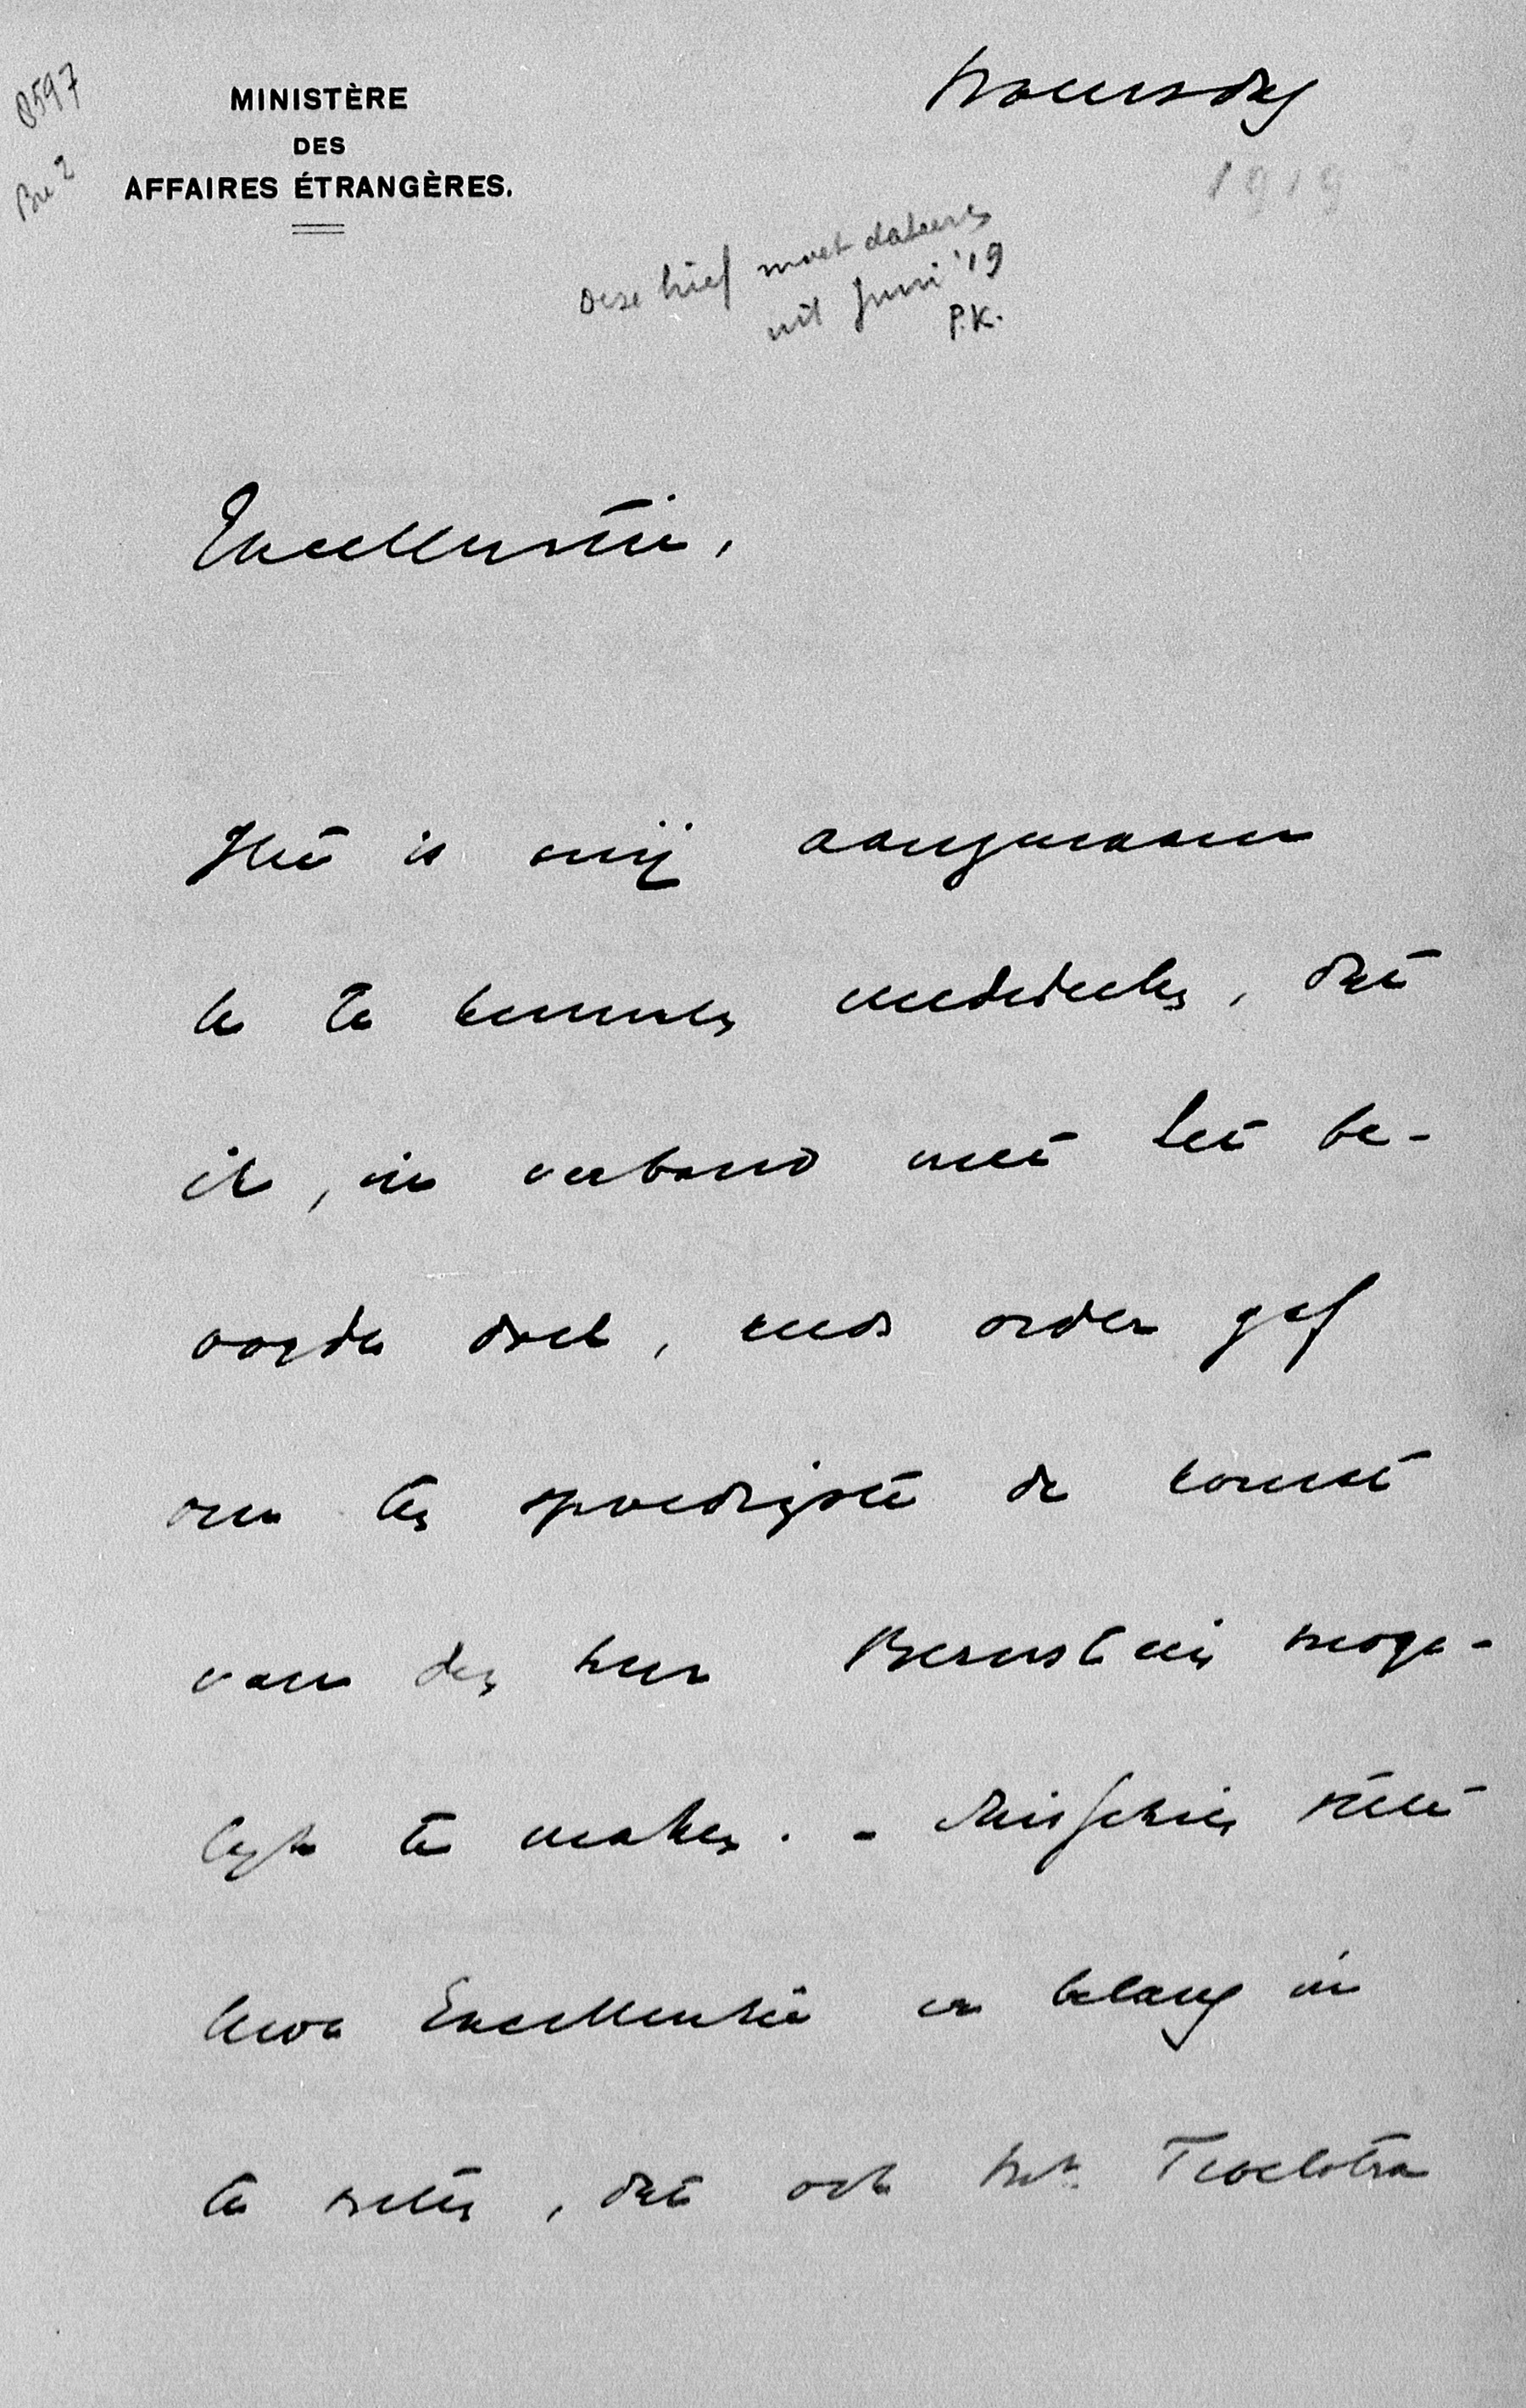 8597
MINISTÈRE
DES
AFFAIRES ÉTRANGÈRES.
Woensdag
1919
deze brief moet dateeren
uit Juni '19
P.K.
Excellentie,
Het is mij aangenaam
te kunnen mededeelen, dat
ik, in verband met het be-
oogde doel, reeds order gaf
om ten spoedigste de komst
van den heer Bernstein moge-
lijk te maken. - Misschien stelt
Uwe Excellentie er belang in
te weten, dat ook Mr. Troelstra